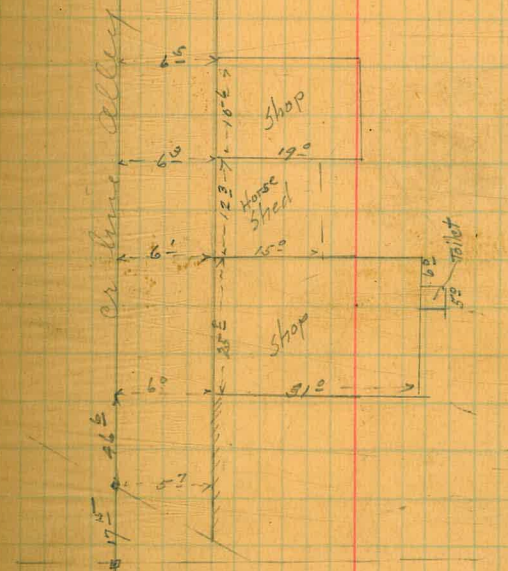 cr line alley
6⁵
Shop
19⁰
6³
12³
Horse
Shed
6¹
15⁰
6⁰
Toilet
5⁰
Shop
6⁰
31⁰
46⁶
5⁷
17